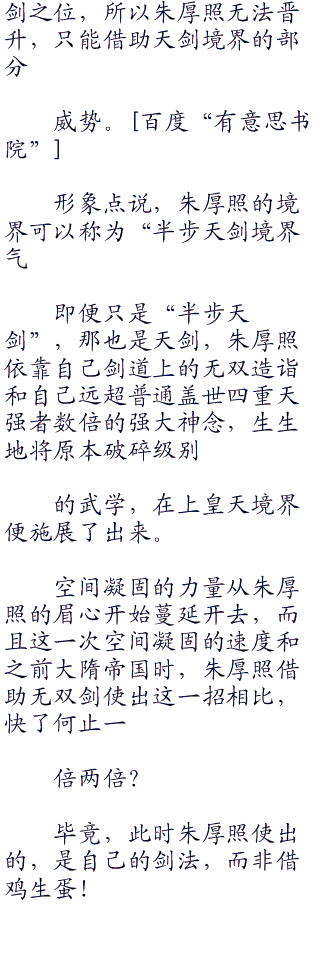 剑之位，所以朱厚照无法晋
升，只能借助天剑境界的部
分
威势。[百度“有意思书
院”]
形象点说，朱厚照的境
界可以称为“半步天剑境界
气
即便只是“半步天
剑”，那也是天剑，朱厚照
依靠自己剑道上的无双造诣
和自己远超普通盖世四重天
强者数倍的强大神念，生生
地将原本破碎级别
的武学，在上皇天境界
便施展了出来。
空间凝固的力量从朱厚
照的眉心开始蔓延开去，而
且这一次空间凝固的速度和
之前大隋帝国时，朱厚照借
助无双剑使出这一招相比，
快了何止一
倍两倍？
毕竟，此时朱厚照使出
的，是自己的剑法，而非借
鸡生蛋！